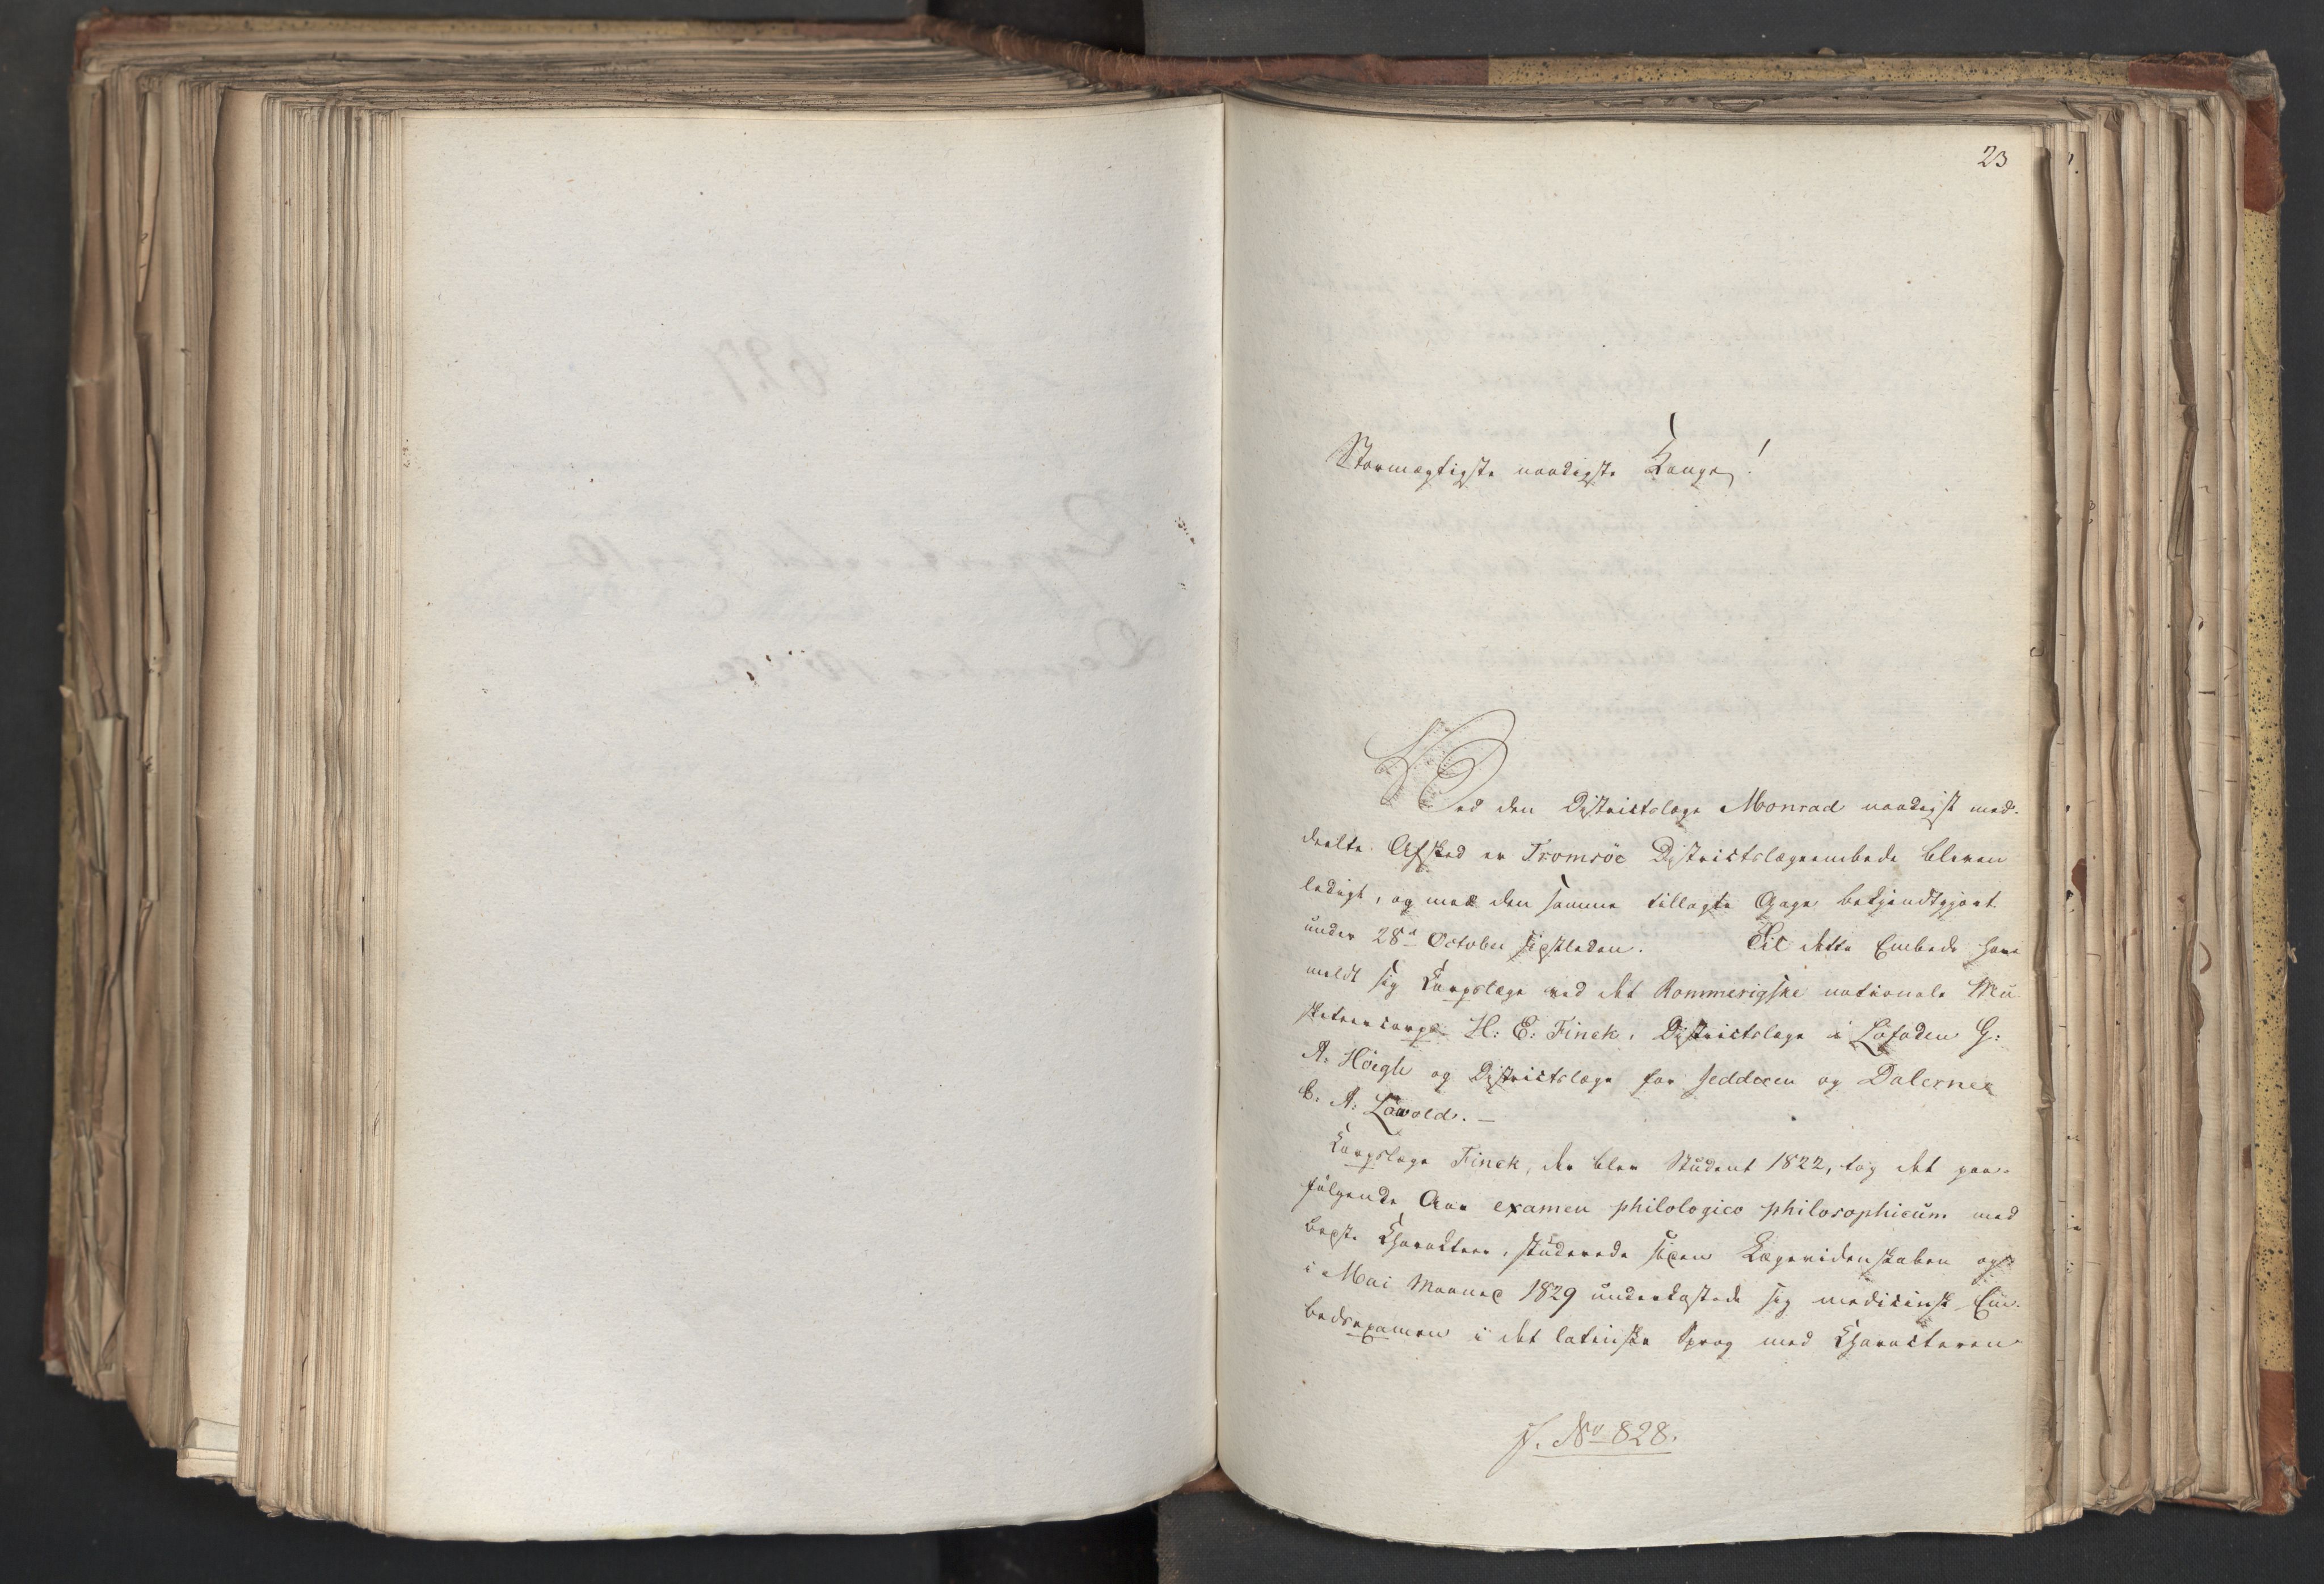 23
Stormægtigste naadigste Konge!
Ved den Districtslæge Monrad naadigst med-
deelte Afsked er Tromsöe Districtslægeembede bleven
ledigt, og med den samme tillagte Gage bekjendtgjort
under 28d October sidstleden. Til dette Embede have
meldt sig Corpslæge ved det Rommerigske nationale Mu-
sketeercorps H: E: Finck, Districtslæge i Lofoden G:
A. Höegh og Districtslæge for Jedderen og Dalerne
A: Lövold. —
Corpslæge Finck, der blev Student 1822, tog det paa-
følgende Aar examen philologico philosophicum med
bedste Charakteer, studerede siden Lægevidenskaben og
i Mai Maaned 1829 underkastede sig medicinsk Em-
bedsexamen i det latinske Sprog med Characteren
J. No 828.